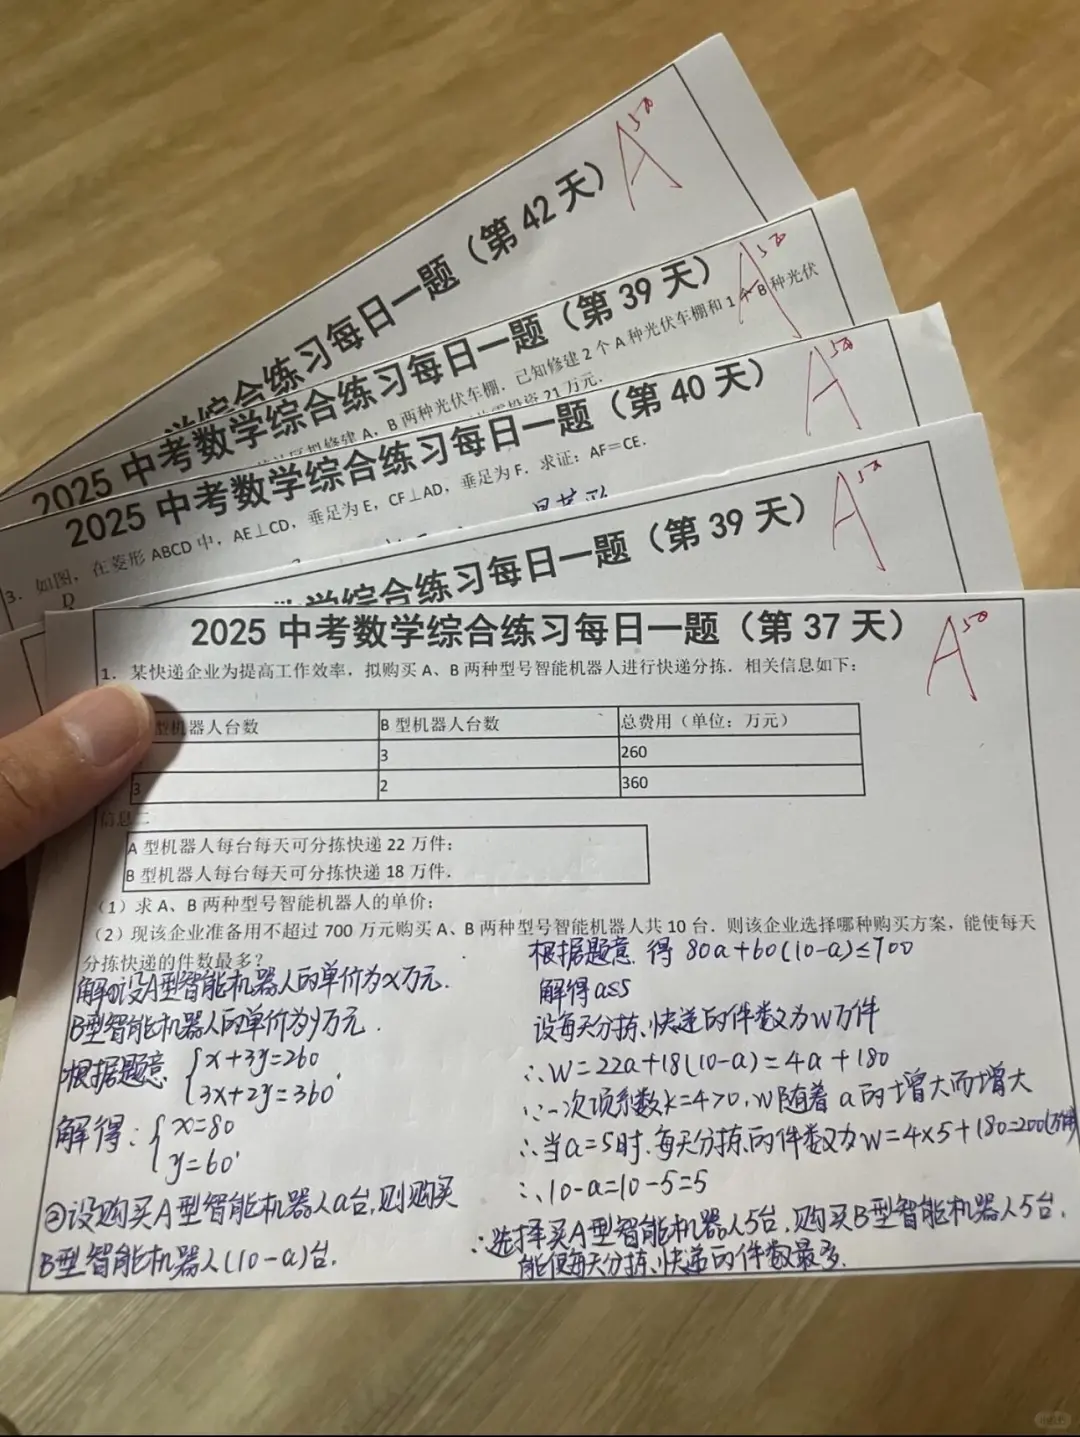 2025 中考数学综合练习每日一题（第 42 天）
A
50
2025 中考数学综合练习每日一题（第 39 天）
A
50
修建 A，B 两种光伏车棚．已知修建 2 个 A 种光伏车棚和 1 个 B 种光伏
21 万元．
2025 中考数学综合练习每日一题（第 40 天）
A
50
3．如图，在菱形 ABCD 中，AE⊥CD，垂足为 E，CF⊥AD，垂足为 F．求证：AF＝CE．
D
数学综合练习每日一题（第 39 天）
A
50
2025 中考数学综合练习每日一题（第 37 天）
A
50
1．某快递企业为提高工作效率，拟购买 A、B 两种型号智能机器人进行快递分拣．相关信息如下：
型机器人台数 B 型机器人台数 总费用（单位：万元）
3 260
3 2 360
信息二
A 型机器人每台每天可分拣快递 22 万件；
B 型机器人每台每天可分拣快递 18 万件．
（1）求 A、B 两种型号智能机器人的单价；
（2）现该企业准备用不超过 700 万元购买 A、B 两种型号智能机器人共 10 台．则该企业选择哪种购买方案，能使每天
分拣快递的件数最多？
解①设A型智能机器人的单价为x万元．
B型智能机器人的单价为y万元．
根据题意 {x+3y=260
3x+2y=360
解得：{x=80
y=60
②设购买A型智能机器人a台，则购买
B型智能机器人(10-a)台．
根据题意，得 80a+60(10-a)≤700
解得a≤5
设每天分拣快递的件数为w万件
∴w=22a+18(10-a)=4a+180
∵一次项系数k=4>0，w随着a的增大而增大
∴当a=5时，每天分拣的件数为w=4×5+180=200(万件)
∴10-a=10-5=5
∴选择买A型智能机器人5台，购买B型智能机器人5台，
能使每天分拣快递的件数最多．